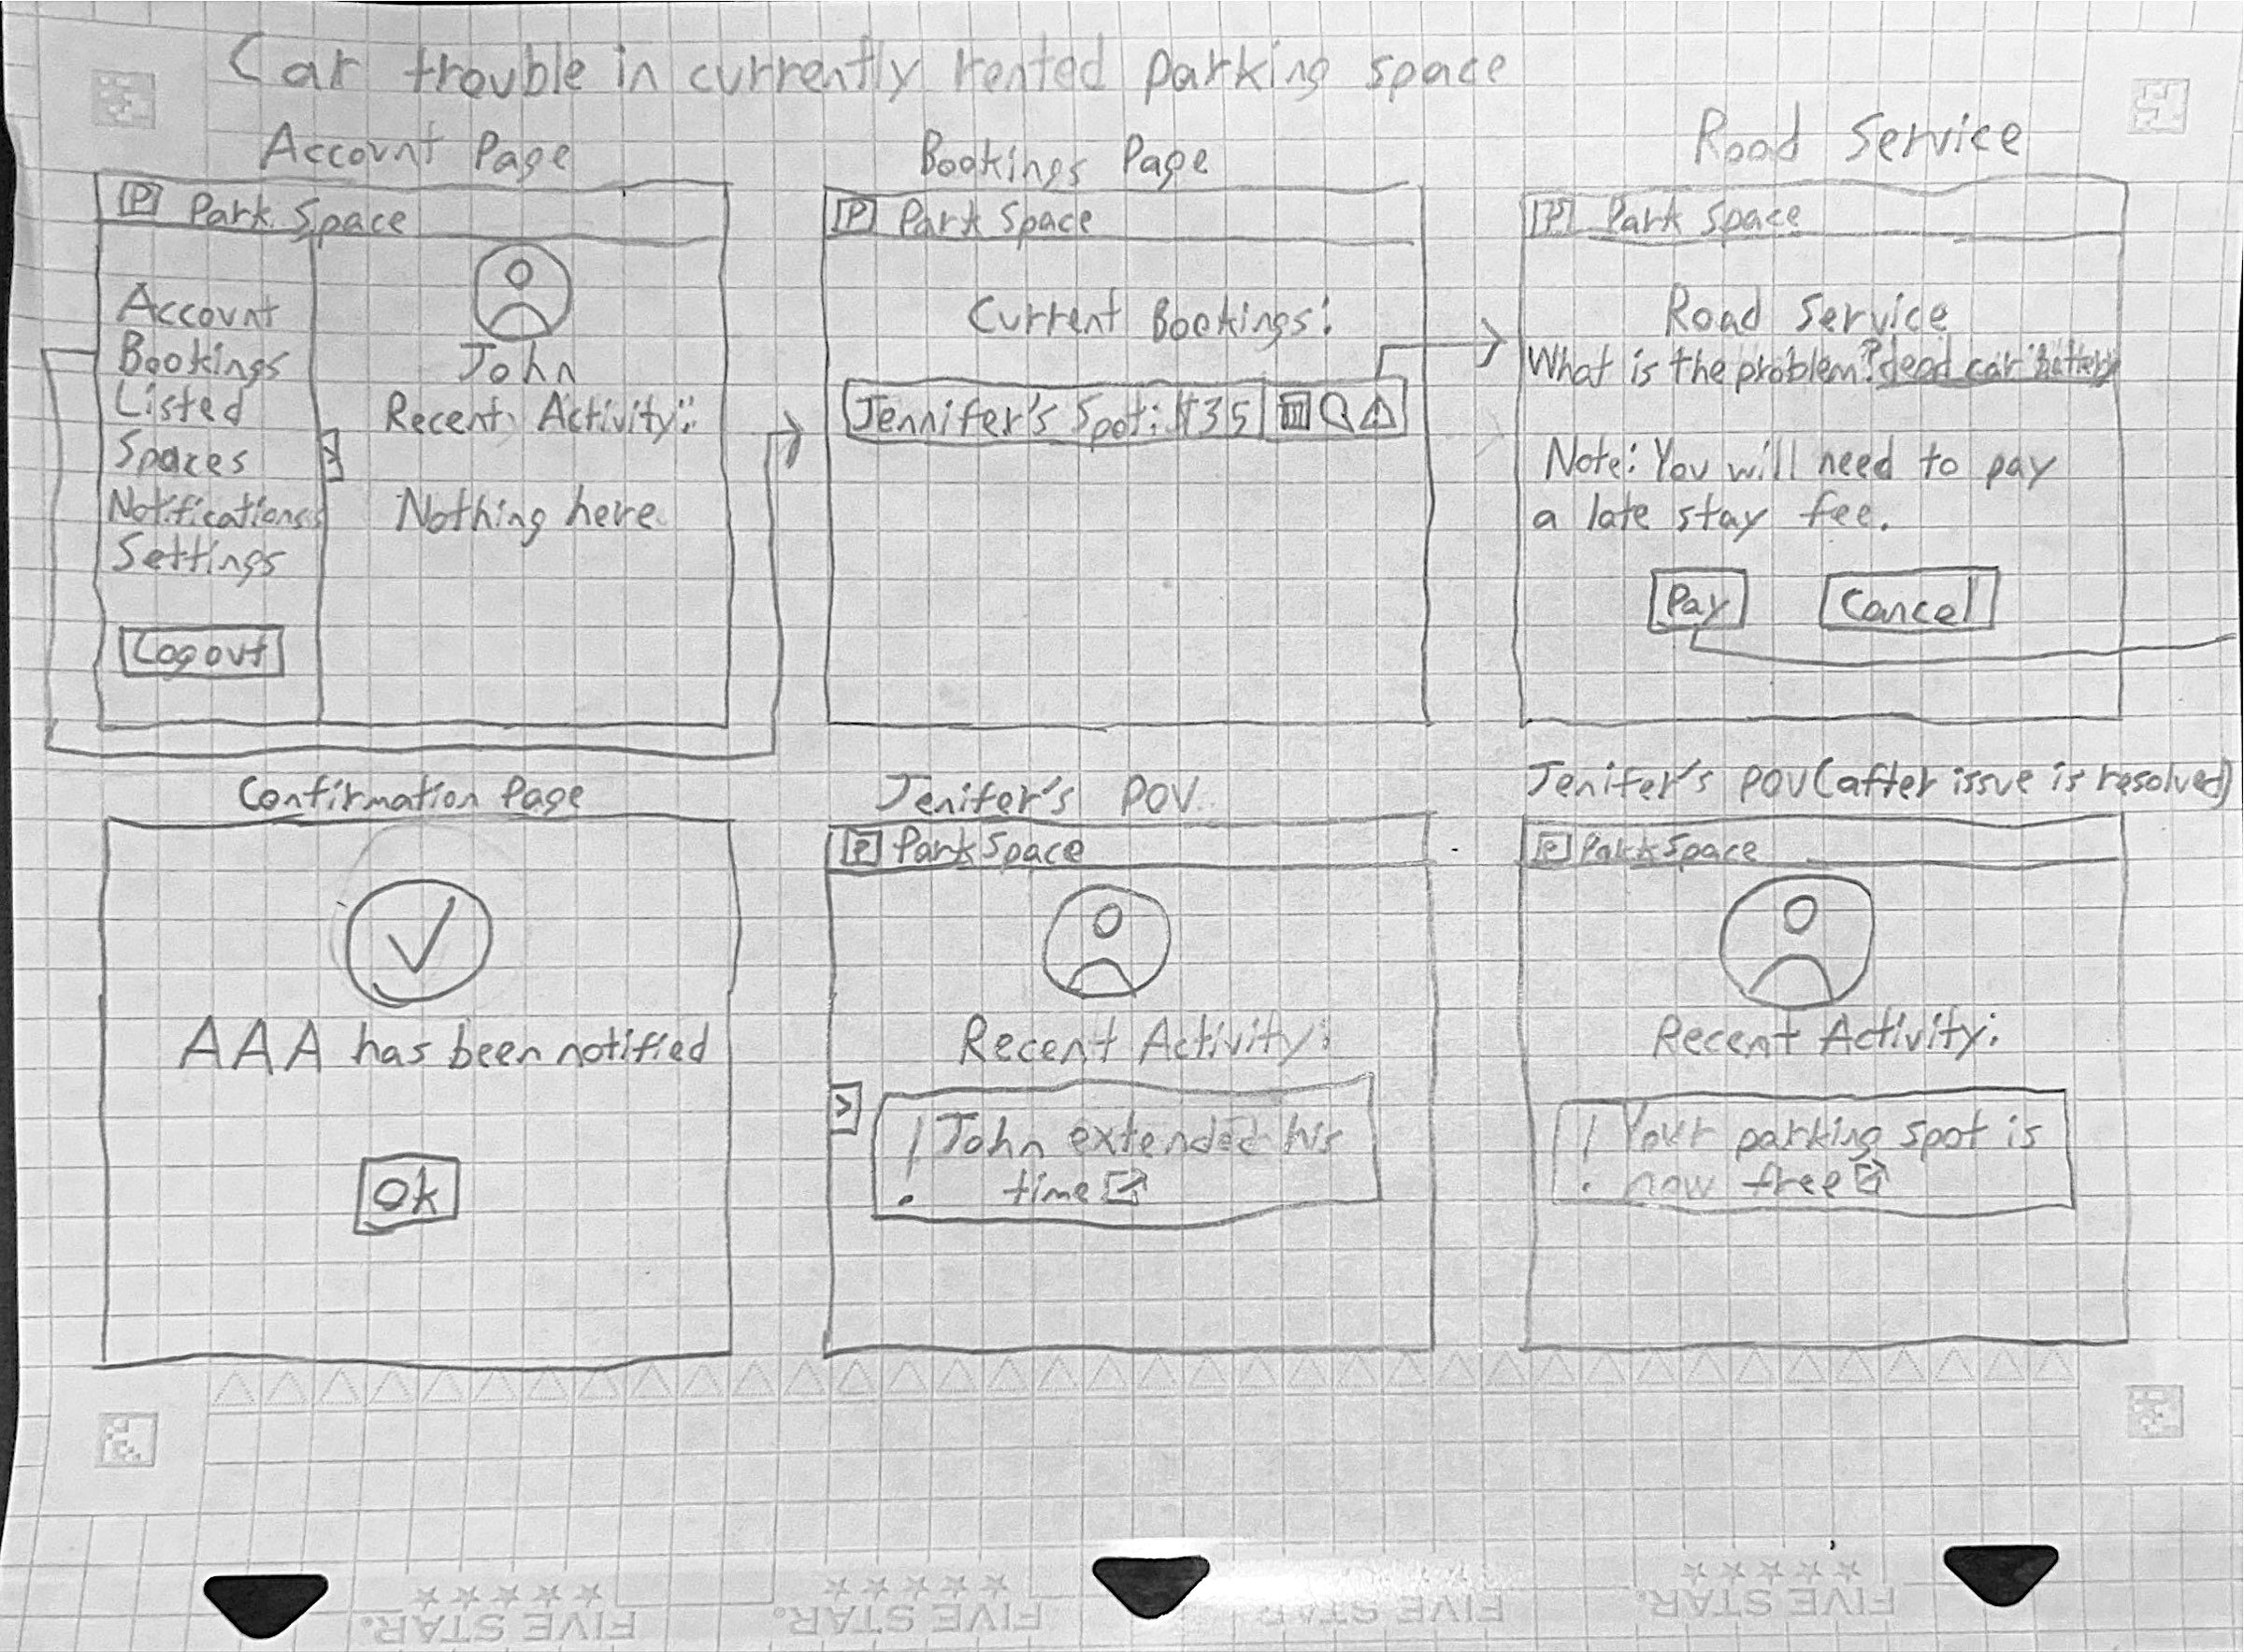 Car trouble in currently rented parking space
Account Page
P Park Space
Account
Bookings
Listed
Spaces
Notifications
Settings
Logout
>
John
Recent Activity:
Nothing here
Bookings Page
P Park Space
Current Bookings:
Jennifer's Spot: $35
Road Service
P Park Space
Road Service
What is the problem? dead car battery
Note: You will need to pay
a late stay fee.
Pay
Cancel
Confirmation Page
AAA has been notified
Ok
Jenifer's POV
P Park Space
Recent Activity:
>
! John extended his
time
Jenifer's POV (after issue is resolved)
P Park Space
Recent Activity:
! Your parking spot is
now free
FIVE STAR.
FIVE STAR.
FIVE STAR.
FIVE STAR.